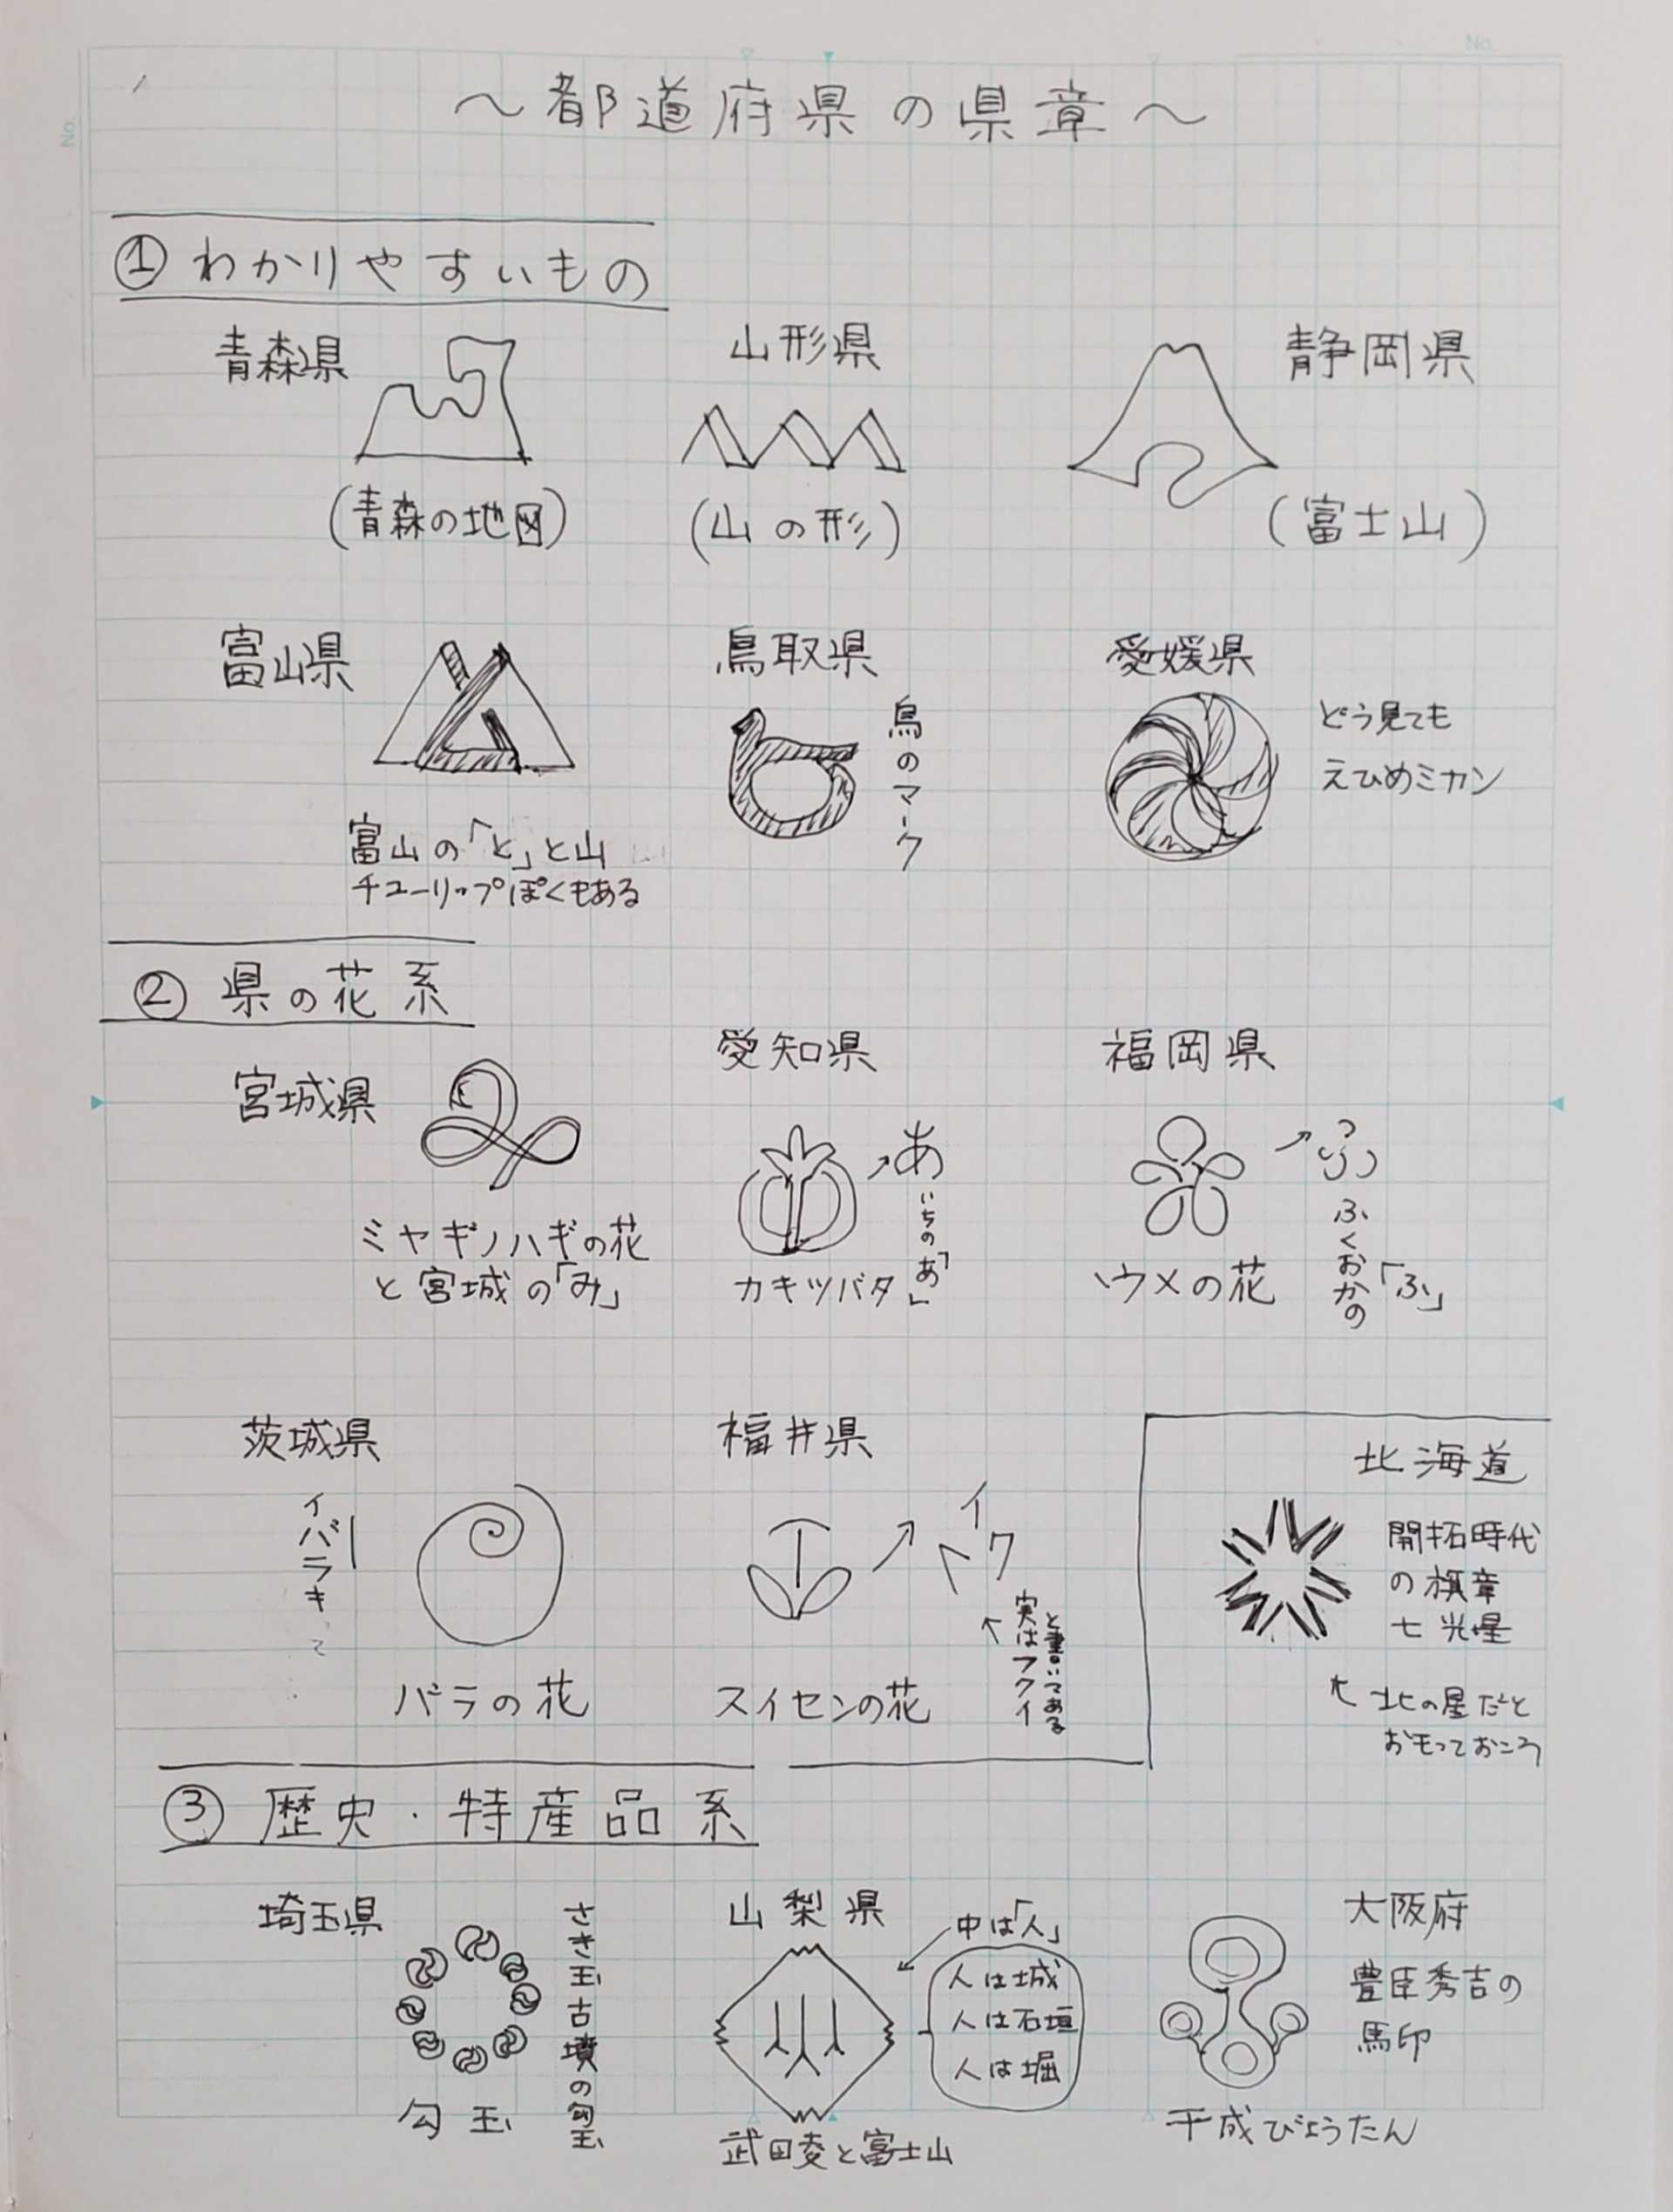 ～都道府県の県章～
① わかりやすいもの
青森県
(青森の地図)
山形県
(山の形)
静岡県
(富士山)
富山県
富山の「と」と山
チューリップぽくもある
鳥取県
鳥のマーク
愛媛県
どう見ても
えひめミカン
② 県の花系
宮城県
ミヤギノハギの花
と宮城の「み」
愛知県
あ
いちの「あ」
カキツバタ
福岡県
ふ
ふくおかの
「ふ」
ウメの花
茨城県
イバラキ
バラの花
福井県
イ
フク
実はフクイ
と書いてある
スイセンの花
北海道
開拓時代
の旗章
七光星
北の星だと
おモっておこう
③ 歴史・特産品系
埼玉県
さき玉古墳の勾玉
勾玉
山梨県
中は「人」
人は城
人は石垣
人は堀
武田菱と富士山
大阪府
豊臣秀吉の
馬印
千成びょうたん